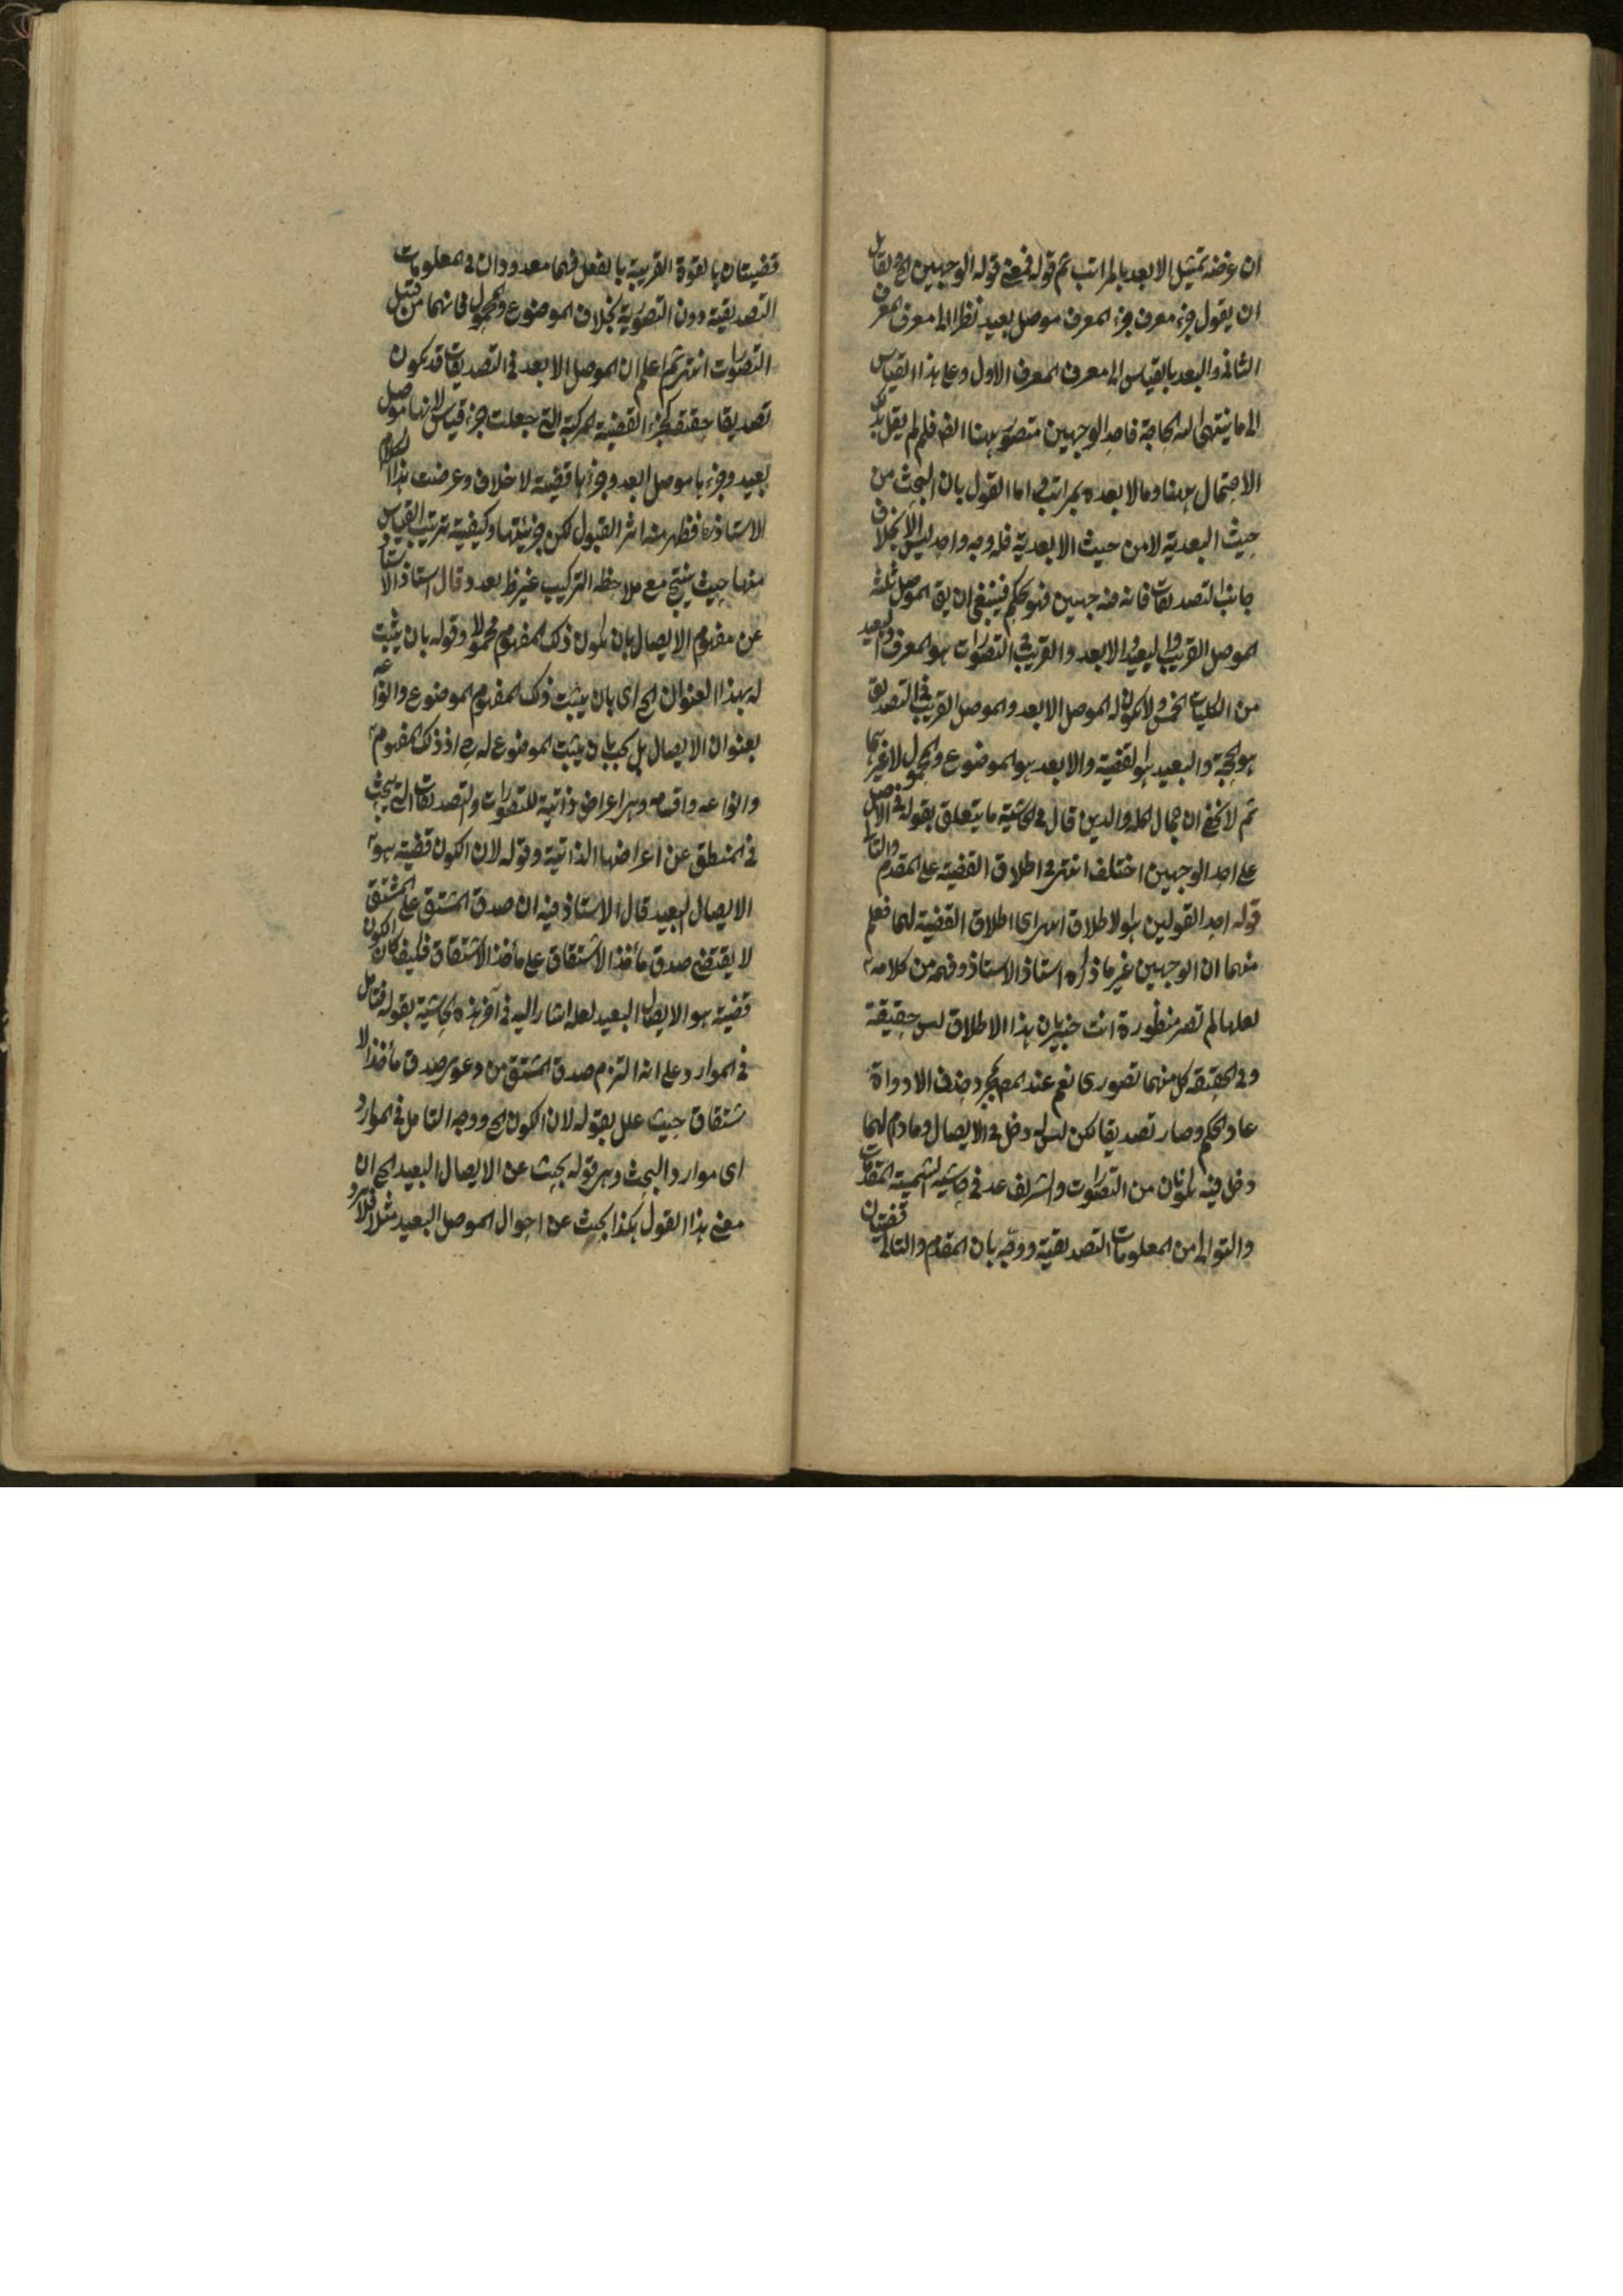 ان غرضه تمثيل الابعد بالمراتب ثم قوله فمعنى قوله الوجهين الخ ولقائل
ان يقول جزء معرف جزء المعرف موصل بعيد نظرا الى معرف المعرف
الثانى والبعد بالقياس الى معرف المعرف الاول وعلى هذا القياس
الى ما ينتهى اليه الحاجة فاحد الوجهين متصور ههنا ايضا فلم لم يقل بذلك
الاحتمال ههنا وما لا بعده بمراتب واما القول بان البحث من
حيث البعدية لا من حيث الابعدية فله وجه واحد ليس الا بخلاف
جانب التصديقات فانه فيه جهتين فهو تحكم فينبغى ان يق الموصل ثلثة
الموصل القريب والبعيد والابعد والقريب فى التصورات هو المعرف والبعيد
من الكليات الخمس ولا يكون له الموصل الابعد والموصل القريب فى التصديق
هو الحجة والبعيد هو القضية والابعد هو الموضوع والمحمول لا غيرهما
ثم لا يخفى ان جمال الملة والدين قال فى الحاشية ما يتعلق بقوله فى الاصل
على احد الوجهين اختلف انتهى فى اطلاق القضية على المقدم والتالى
قوله احد القولين هو الاطلاق انتهى اى اطلاق القضية لهما فعلم
منهما ان الوجهين غير ما ذكره استاذ الاستاذ وفهمه من كلامه
لعلها لم تصر منظورة انت خبير بان هذا الاطلاق ليس حقيقة
وفى الحقيقة كل منهما تصورى نعم عند المص بمجرد حذف الادواة
عاد الحكم وصار تصديقا لكن ليس له دخل فى الايصال وما دام لهما
دخل فيه يكونان من التصورات والشريف عد فى حاشية الشمسية المقدمات
والتوالى من المعلومات التصديقية ووجه بان المقدم والتالى قضيتان
قضيتان بالقوة القريبة بالفعل فهما معدودان فى المعلومات
التصديقية دون التصورية بخلاف الموضوع والمحمول فانهما من قبيل
التصورات انتهى ثم اعلم ان الموصل الابعد فى التصديقات قد يكون
تصديقا حقيقة كجزء القضية المركبة التى جعلت جزء قياس لانها موصل
بعيد وجزءها موصل ابعد وجزءها قضية لا خلاف وعرضت هذا الكلام
الاستاذ ره فظهر منه اثر القبول لكن جزئيتها وكيفية ترتيب القياس
منها حيث ينتج مع ملاحظة التركيب غير ظ بعد وقال استاذ الاستاد
عن مفهوم الايصال بان يكون ذلك المفهوم محمولا وقوله بان يثبت
له بهذا العنوان الخ اى بان يثبت ذلك المفهوم الموضوع وانواعه
بعنوان الايصال بل يجب بان يثبت الموضوع له اذ ذلك المفهوم
وانواعه واقسامه وهى اعراض ذاتية للتصورات والتصديقات التى يبحث
فى المنطق عن اعراضها الذاتية وقوله لان الكون قضية هو
الايصال البعيد قال الاستاذ فيه ان صدق المشتق على المشتق
لا يقتضى صدق مأخذ الاشتقاق على مأخذ الاشتقاق فكيف كان الكون
قضية هو الايصال البعيد لعله اشار اليه فى آخر هذه الحاشية بقوله فتامل
فى الموارد على انه التزم صدق المشتق من دعوى صدق مأخذ الا
شتقاق حيث علل بقوله لان الكون الخ ووجه التامل فى الموارد
اى موارد البحث وهى قوله بحث عن الايصال البعيد الخ ان
معنى هذا القول هكذا بحث عن احوال الموصل البعيد مثلا فلا يرد